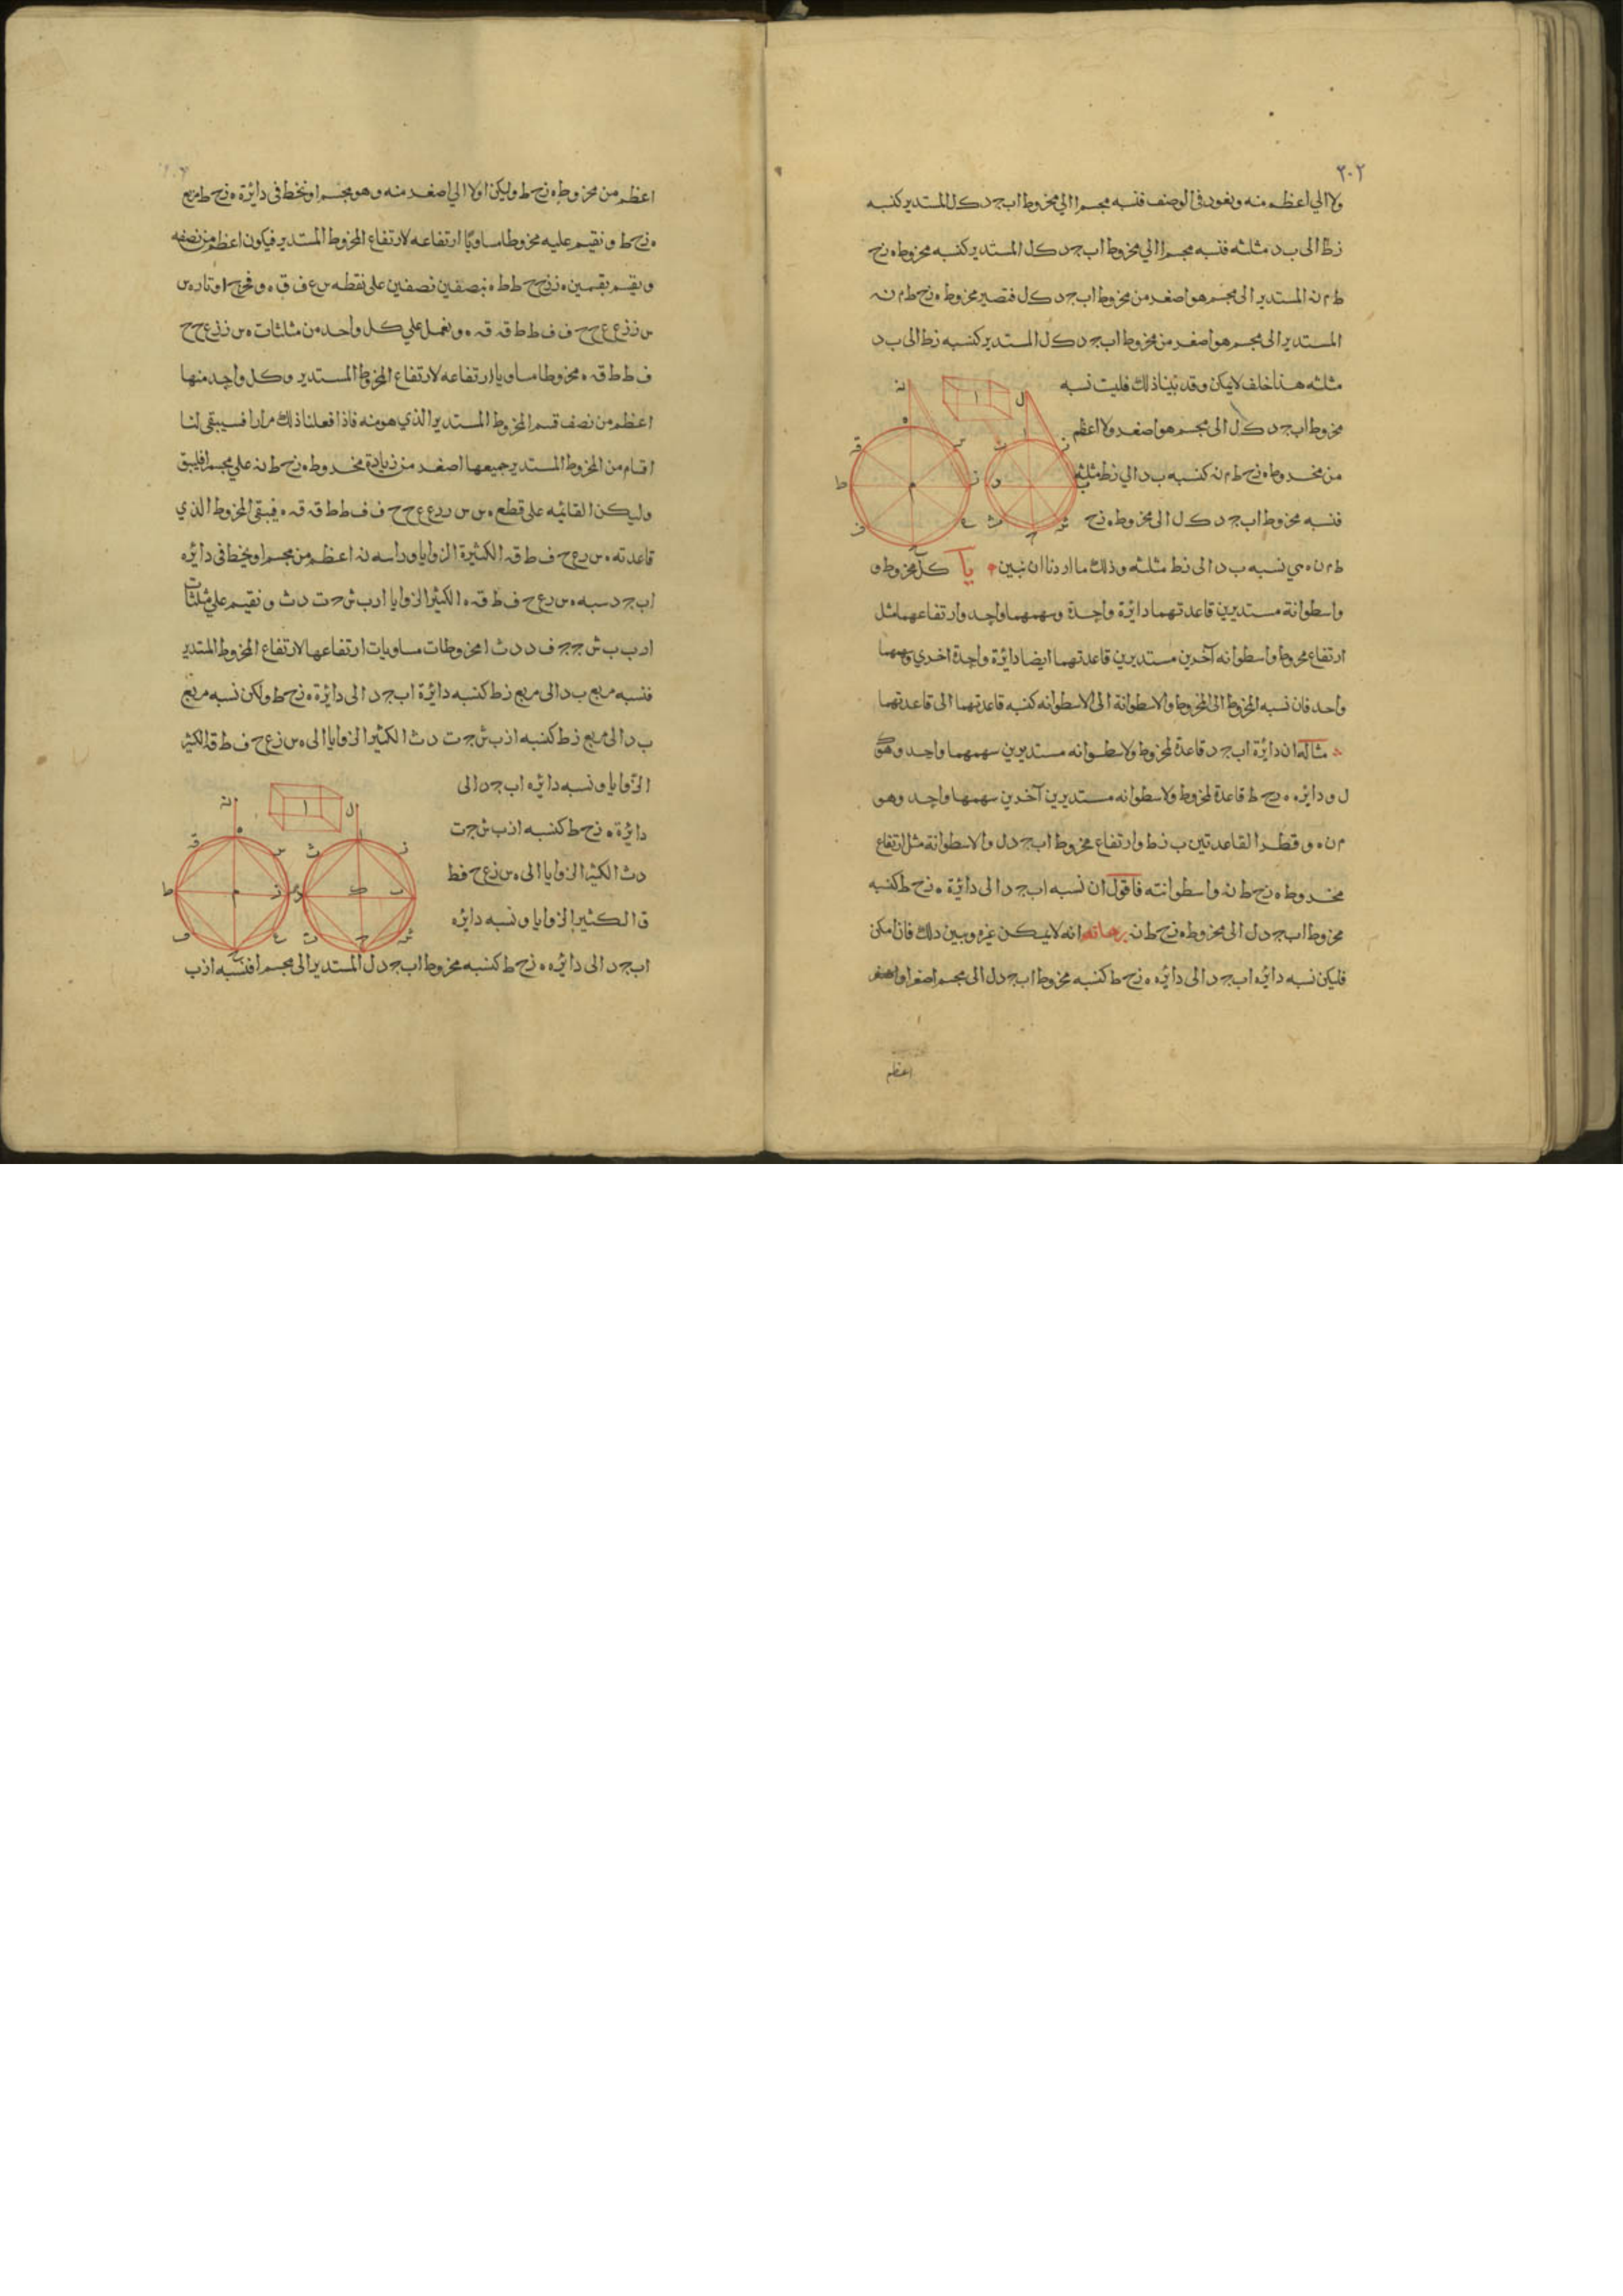 ٢٠٢
ولا الي اعظم منه ونعود في الوصف فنسبه مجسم ا الي مخروط اب جد ك ل المستدير كنسبه
زط الى ب د مثلثه فنسبه مجسم ا الي مخروط اب جد ك ل المستدير كنسبه مخروط ه زح
ط م نه المستدير الى مجسم هو اصغر من مخروط اب جد ك ل فتصير مخروط ه زح ط م نه
المستدير الى مجسم هو اصغر من مخروط اب جد ك ل المستدير كنسبه زط الى ب د
مثلثه هذا خلف لا يمكن وقد بينا ذلك فليست نسبه
مخروط اب جد ك ل الى مجسم هو اصغر ولا اعظم
من مخروط ه زح ط م نه كنسبه ب د الي زط مثلثه
فنسبه مخروط اب جد ك ل الى مخروط ه زح
ط م نه هي نسبه ب د الى زط مثلثه وذلك ما اردنا ان نبين يا كل مخروط و
واسطوانة مستديرين قاعدتهما دائرة واحدة وسهمهما واحد وارتفاعهما مثل
ارتفاع مخروط واسطوانه آخرين مستديرين قاعدتهما ايضا دائرة واحدة اخري وسهمهما
واحد فان نسبه المخروط الى المخروط والاسطوانة الى الاسطوانه كنسبه قاعدتهما الى قاعدتهما
مثاله ان دائرة اب جد قاعدة لمخروط ولاسطوانه مستديرين سهمهما واحد وهو ك
ل ودائره ه زح ط قاعدة لمخروط ولاسطوانه مستديرين آخرين سهمهما واحد وهو
م نه وقطرا القاعدتين ب زط وارتفاع مخروط اب جد ل والاسطوانة مثل ارتفاع
مخروط ه زح ط نه واسطوانته فاقول ان نسبه اب جد الى دائرة ه زح ط كنسبه
مخروط اب جد ل الى مخروط ه زح ط نه برهانه انه لا يمكن غيره وبين ذلك فان امكن
فليكن نسبه دائره اب جد الى دائره ه زح ط كنسبه مخروط اب جد ل الى مجسم اصغر او
اعظم
اعظم من مخروط ه زح ط وليكن اولا الي اصغر منه وهو مجسم ا ونخط في دائرة ه زح ط مربع
ه زح ط ونقيم عليه مخروطا مساويا ارتفاعه لارتفاع المخروط المستدير فيكون اعظم من نصفه
ونقسم بقسمين ه ز زح ح ط ط ه بنصفين نصفين على نقطه س ع ف ق ه ونخرج اوتاره س
س ز زع ع ح ح ف ف ط ط قه قه ه ونعمل علي كل واحد من مثلثات ه س ز زع ح ح
ف ط ط قه ه مخروطا مساويا ارتفاعه لارتفاع المخروط المستدير وكل واحد منها
اعظم من نصف قسم المخروط المستدير الذي هو منه فاذا فعلنا ذلك مرارا فسيبقى لنا
اقسام من المخروط المستدير جميعها اصغر من زيادة مخروط ه زح ط نه علي مجسم ا فليبق
وليكن القائمه على قطع ه س س ز زع ع ح ح ف ف ط ط قه قه ه فيبقى المخروط الذي
قاعدته ه س زع ح ف ط قه الكثيرة الزوايا وراسه نه اعظم من مجسم ا ونخط في دائره
اب جد شبه ه س زع ح ف ط قه ه الكثير الزوايا ار ب ش ج ت د ث ونقيم علي مثلثات
ار ب ب ش ج ج ف د د ث ا مخروطات مساويات ارتفاعها لارتفاع المخروط المستدير
فنسبه مربع ب د الى مربع زط كنسبه دائرة اب جد الى دائرة ه زح ط ولكن نسبه مربع
ب د الى مربع زط كنسبه ا ز ب ش ج ت د ث الكثير الزوايا الى ه س زع ح ف ط قه الكثير
الزوايا ونسبه دائره اب جد الى
دائرة ه زح ط كنسبه ا ز ب ش ج ت
د ث الكثير الزوايا الى ه س زع ح ف ط
ق الكثير الزوايا ونسبه دائره
اب جد الى دائره ه زح ط كنسبه مخروط اب جد ل المستدير الى مجسم ا فنسبه ا ز ب